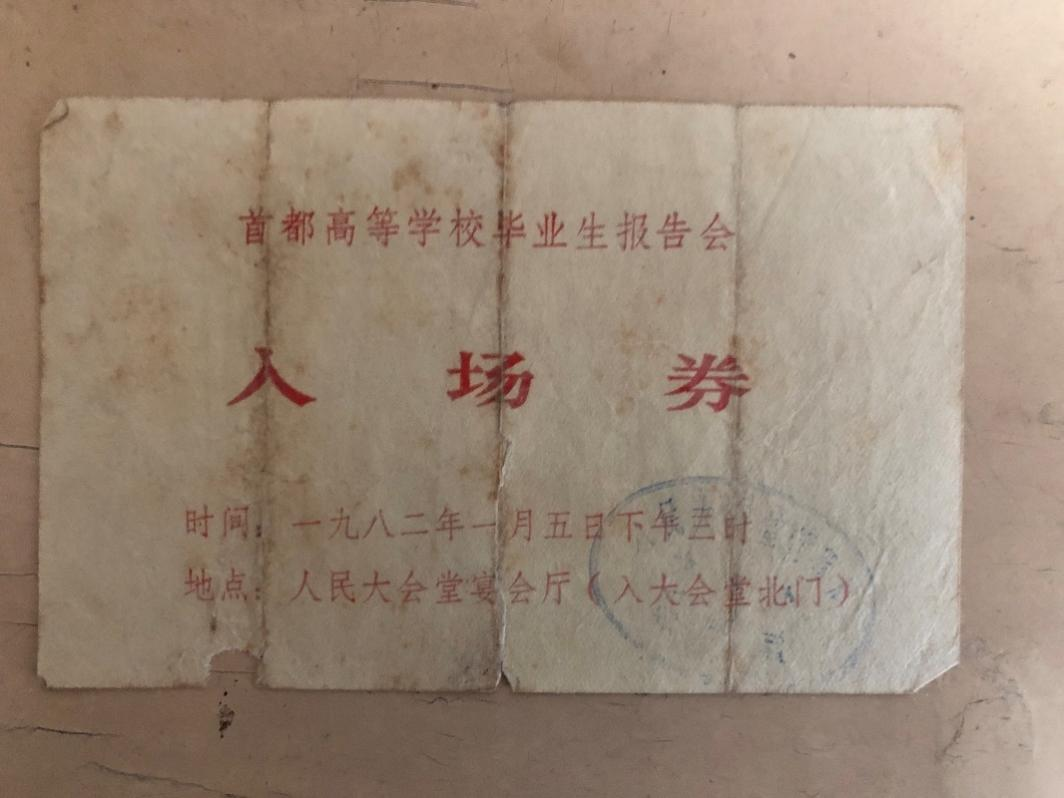 首都高等学校毕业生报告会
入场券
时间：一九八二年一月五日下午三时
地点：人民大会堂宴会厅（入大会堂北门）